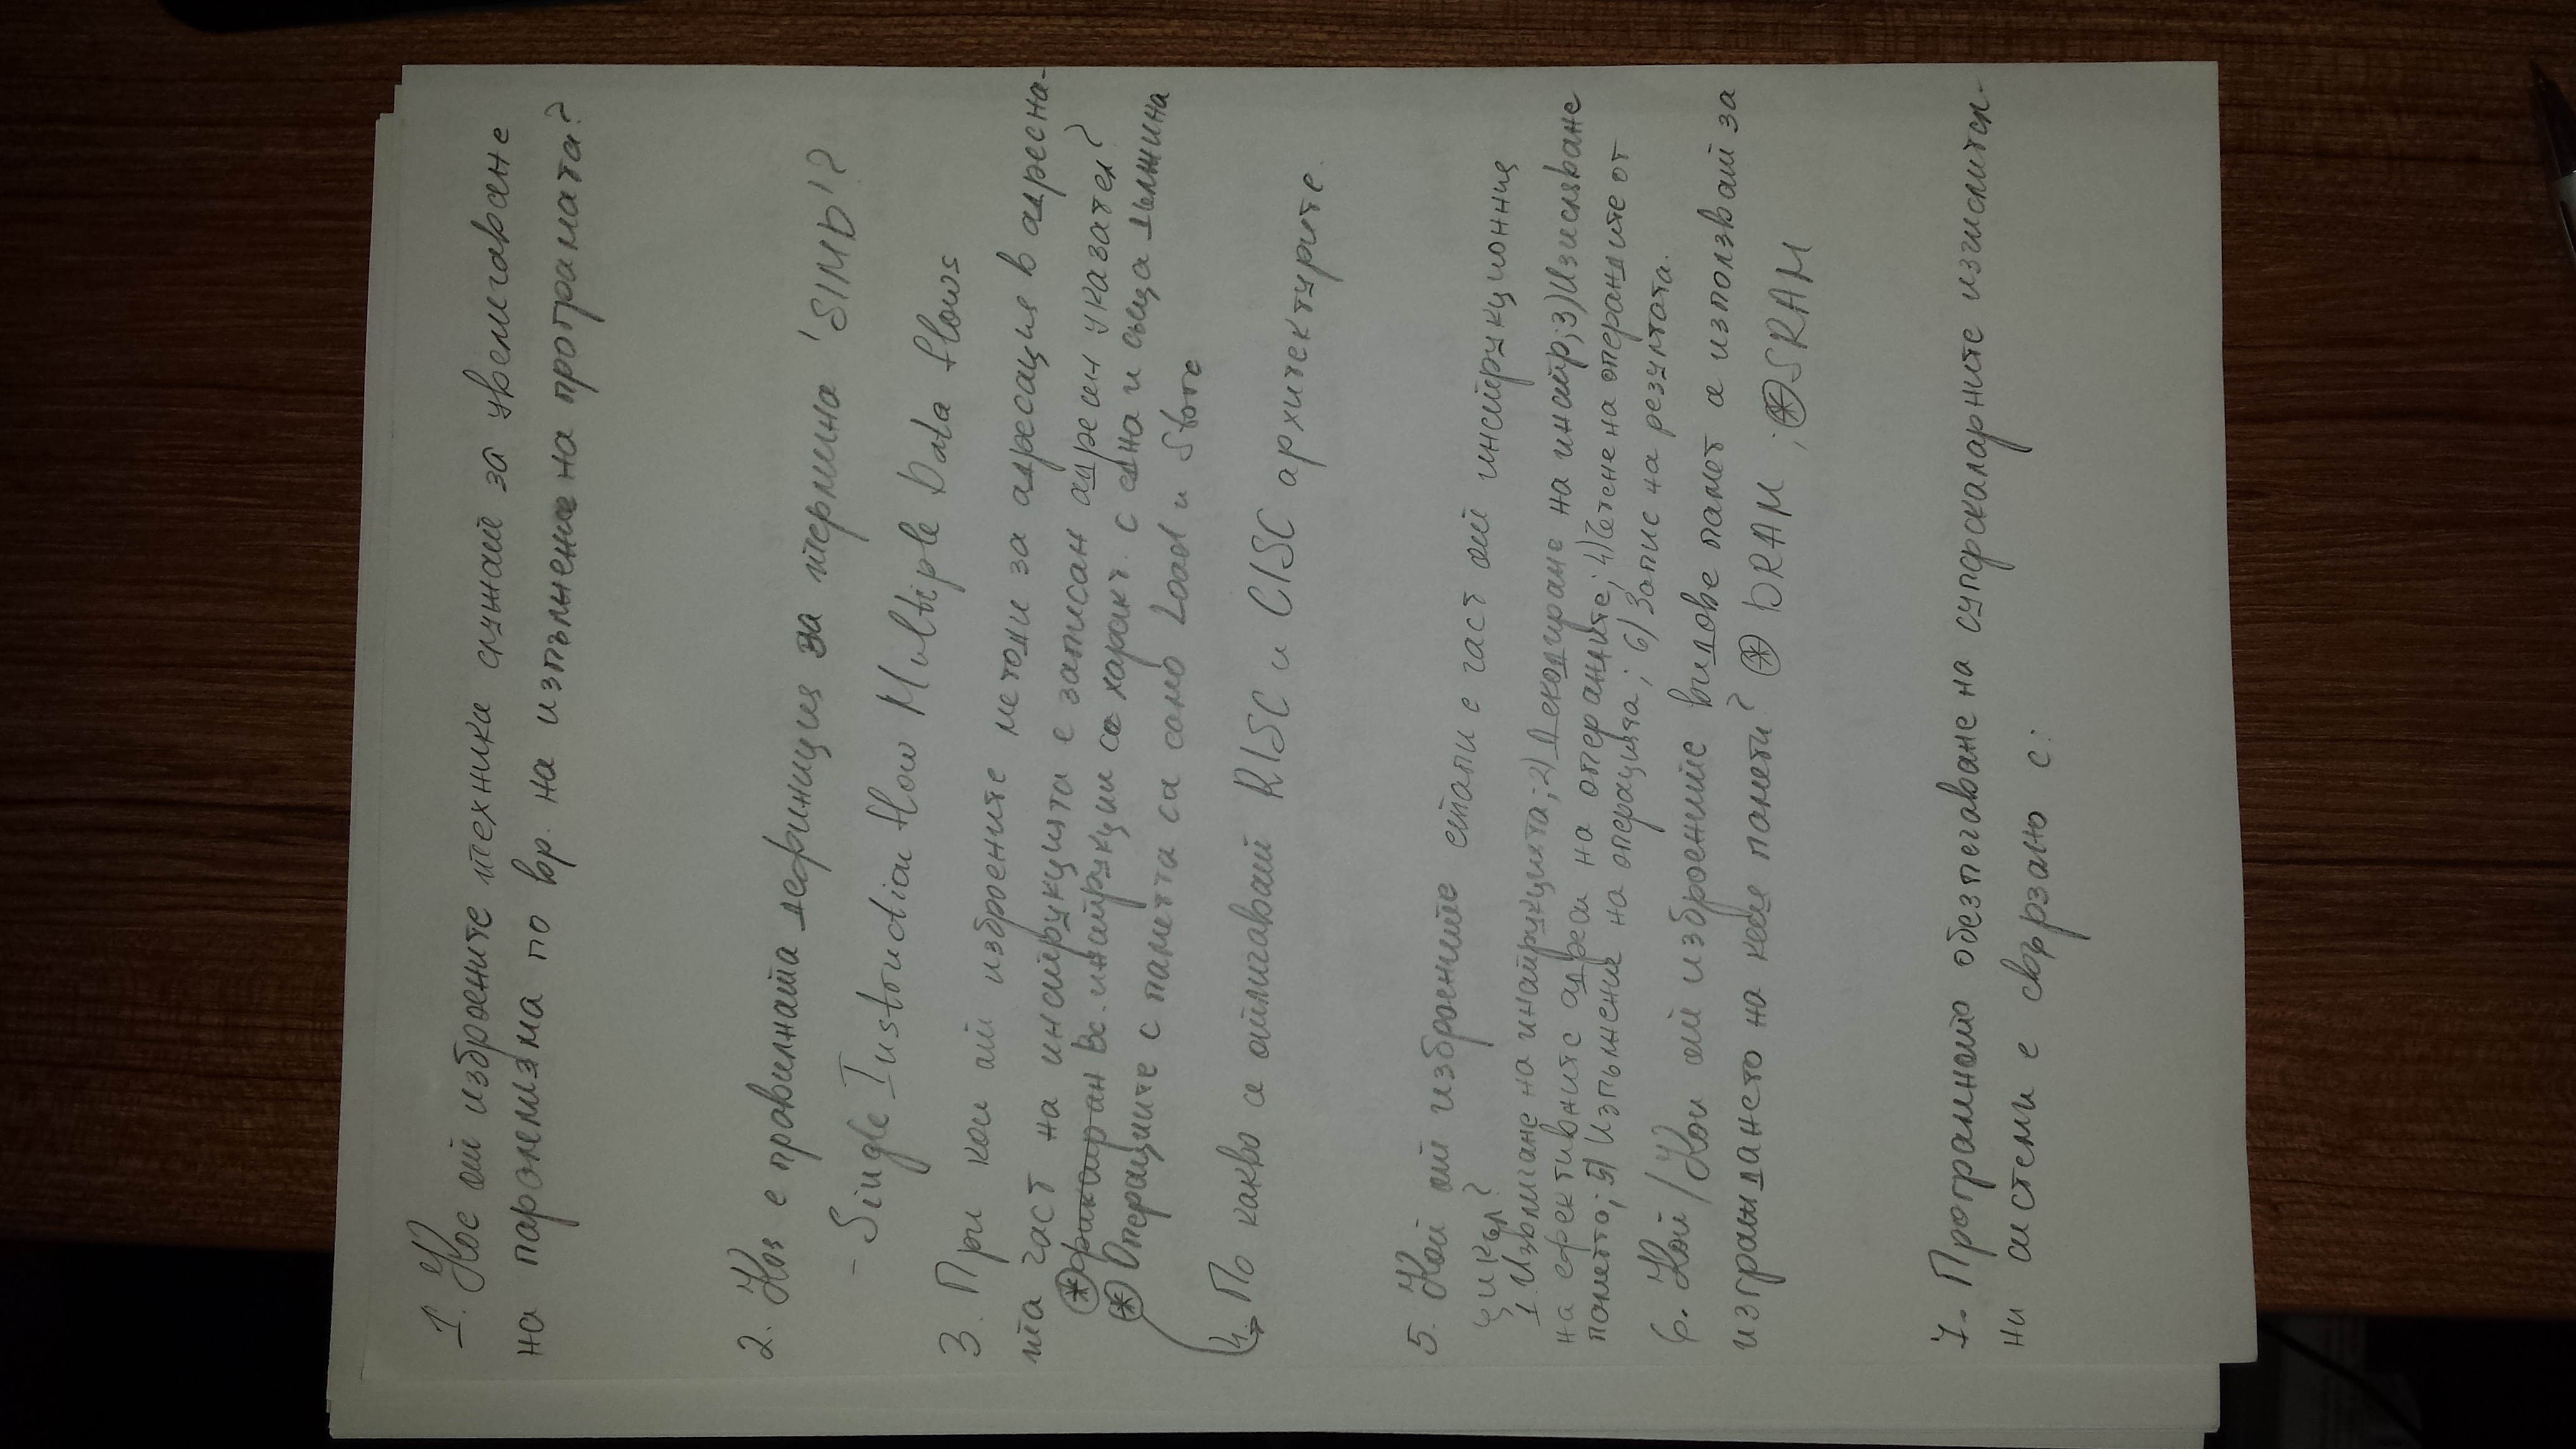 1. Кое от изброените техники служат за увеличаване
на паралелизма по вр. на изпълнение на програмата?
2. Коя е правилната дефиниция за термина 'SIMD'?
- Single Instruction flow Multiple Data flows
3. При кои от изброените методи за адресация в адресна-
та част на инструкцията е записан адресен указател?
фиксиран Вс. инструкции са характ. с една и съща дължина
Операциите с паметта са само Load и Store
4. По какво се отличават RISC и CISC архитектурите.
5. Кой от изброените етапи е част от инструкционния
цикъл?
1. Извличане на инструкцията; 2) Декодиране на инстр; 3) Изчисляване
на ефективните адреси на операндите; 4) Четене на операндите от
паметта; 5) Изпълнение на операцията; 6) Запис на резултата.
6. Кой / Кои от изброените видове памет се използват за
изграждането на кеш памети? DRAM; SRAM
7. Програмното обезпечаване на суперскаларните изчислител-
ни системи е свързано с: